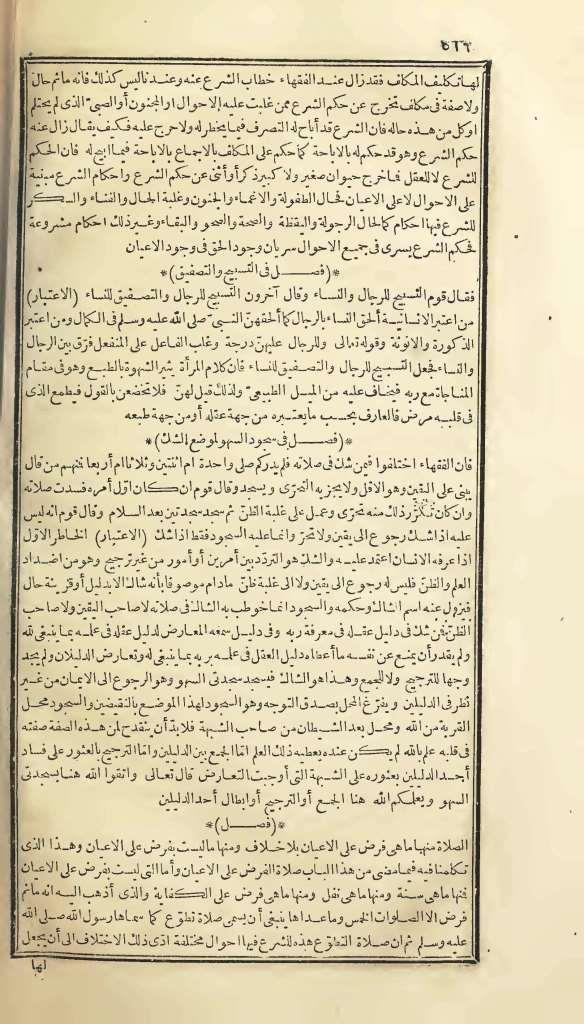 ٤٦٩
لها تكليف المكلف فقد زال عند الفقهاء خطاب الشرع عنه وعندنا ليس كذلك فانه ماثم حال
ولا صفة في مكلف تخرج عن حكم الشرع ممن غلبت عليه الاحوال او المجنون أو الصبي الذى لم يحتلم
او كل من هذه حاله فان الشرع قد أباح له التصرف فيما يخطر له ولا حرج عليه فكيف يقال زال عنه
حكم الشرع وهو قد حكم له بالاباحة كما حكم على المكلف بالاجماع بالاباحة فيما ابيح له فان الحكم
للشرع لا للعقل فما خرج حيوان صغير ولا كبير ذكر أو أنثى عن حكم الشرع واحكام الشرع مبنية
على الاحوال لا على الاعيان فحال الطفولة والانغماء والجنون وغلبة الحال والفناء والسكر
للشرع فيها احكام كما لحال الرجولة واليقظة والصحة والصحو والبقاء وغير ذلك احكام مشروعة
فحكم الشرع يسرى فى جميع الاحوال سريان وجود الحق فى وجود الاعيان
*(فصل فى التسبيح والتصفيق)*
فقال قوم التسبيح للرجال والنساء وقال آخرون التسبيح للرجال والتصفيق للنساء (الاعتبار)
من اعتبر الانسانية ألحق النساء بالرجال كما ألحقهن النبي صلى الله عليه وسلم فى الكمال ومن اعتبر
الذكورة والانوثة وقوله تعالى وللرجال عليهن درجة وغاب الفاعل على المنفعل فرق بين الرجال
والنساء فجعل التسبيح للرجال والتصفيق للنساء فان كلام المرأة يثير الشهوة بالطبع وهو فى مقام
المناجاة مع ربه فيخاف عليه من الميل الطبيعى ولذلك قيل لهن فلا تخضعن بالقول فيطمع الذى
فى قلبه مرض فالعارف بحسب ما يعتبره من جهة عقله أو من جهة طبعه
*(فصل فى سجود السهو لموضع الشك)*
فان الفقهاء اختلفوا فيمن شك فى صلاته فلم يدركم صلى واحدة ام اثنتين وثلاثا ام أربعا فنهم من قال
يبنى على اليقين وهو الاقل ولا يجزيه التحرى ويسجد وقال قوم ان كان اول أمره فسدت صلاته
وان كان تكرر ذلك منه تحرى وعمل على غلبة الظن ثم سجد سجدتين بعد السلام وقال قوم انه ليس
عليه اذا شك رجوع الى يقين ولا تحر وانما عليه السجود فقط اذا شك (الاعتبار) الخاطر الاول
اذا عرفه الانسان اعتمد عليه والشك هو التردد بين أمرين أو أمور من غير ترجيح وهو من اضداد
العلم والظن فليس له رجوع الى يقين ولا الى غلبة ظن مادام موصوفا بأنه شاك الا بدليل أو قرينة حال
فيزول عنه اسم الشاك وحكمه والسجود انما خوطب به الشاك فى صلاته لا صاحب اليقين ولا صاحب
الظن فمن شك فى دليل عقله فى معرفة ربه وفى دليل سمعه المعارض لدليل عقله فى علمه بما ينبغى لله
ولم يقدر أن يمنع عن نفسه ما أعطاه دليل العقل فى علمه بربه بما ينبغى له وتعارض الدليلان ولم يجد
وجها للترجيح ولا للجمع وهذا هو الشاك فيسجد سجدتى السهو وهو الرجوع الى الايمان من غير
نظر فى الدليلين ويفرغ المحل بصدق التوجه وهو السجود لهذا الموضع بالنقيضين والسجود محل
القربة من الله ومحل بعد الشيطان من صاحب الشبهة فلا بد أن ينقدح لمن هذه الصفة صفته
فى قلبه علم بالله لم يكن عنده يعطيه ذلك العلم اما الجمع بين الدليلين واما الترجيح بالعثور على فساد
أحد الدليلين بعثوره على الشبهة التى أوجبت التعارض قال تعالى واتقوا الله هنا بسجدتى
السهو ويعلمكم الله هنا الجمع أو الترجيح أو ابطال أحد الدليلين
*(فصل)*
الصلاة منها ما هى فرض على الاعيان بلا خلاف ومنها ما ليست بفرض على الاعيان وهذا الذى
تكلمنا فيه فيما مضى من هذا الباب صلاة الفرض على الاعيان وأما التى ليست بفرض على الاعيان
فنها ما هى سنة ومنها ما هى نفل ومنها ما هى فرض على الكفاية والذى أذهب اليه انه ماثم
فرض الا الصلوات الخمس وما عداها ينبغى أن يسمى صلاة تطوع كما سماها رسول الله صلى الله
عليه وسلم ثم ان صلاة التطوع هذه للشرع فيها احوال مختلفة ادى ذلك الاختلاف الى أن يجعل
لها